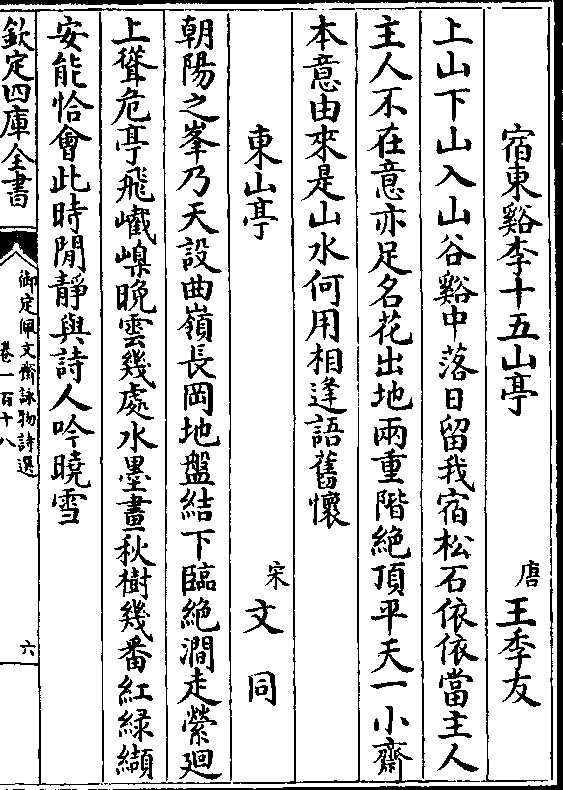 宿東谿李十五山亭
唐王季友
上山下山入山谷谿中落日留我宿松石依依當主人
主人不在意亦足名花出地兩重階絶頂平天一小齋
本意由來是山水何用相逢語舊懷
東山亭
宋文同
朝陽之峯乃天設曲嶺長岡地盤結下臨絶澗走縈廻
上聳危亭飛嶻嵲晩雲幾處水墨畫秋樹幾番紅緑纈
安能恰會此時閒靜與詩人吟曉雪
欽定四庫全書
御定佩文齋詠物詩選
卷一百十八
六